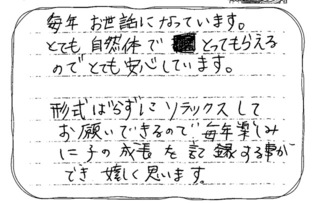 毎年 お世話になっています。
とても 自然体で とってもらえる
のでとても安心しています。
形式ばらずに リラックスして
お願いできるので 毎年楽しみ
に子の成長を記録する事が
でき 嬉しく思います。